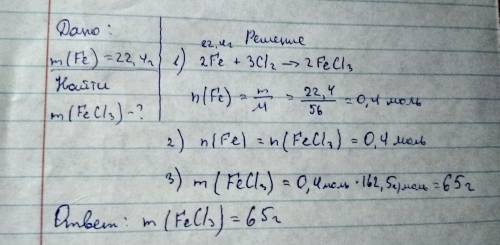 Дано:
m(Fe)=22,4г
Найти
m(FeCl₃)-?
Решение
22,4г
1) 2Fe + 3Cl₂ → 2FeCl₃
n(Fe) = m/M = 22,4/56 = 0,4 моль
2) n(Fe) = n(FeCl₃) = 0,4 моль
3) m(FeCl₃) = 0,4моль · 162,5г/моль = 65г
Ответ: m(FeCl₃) = 65г